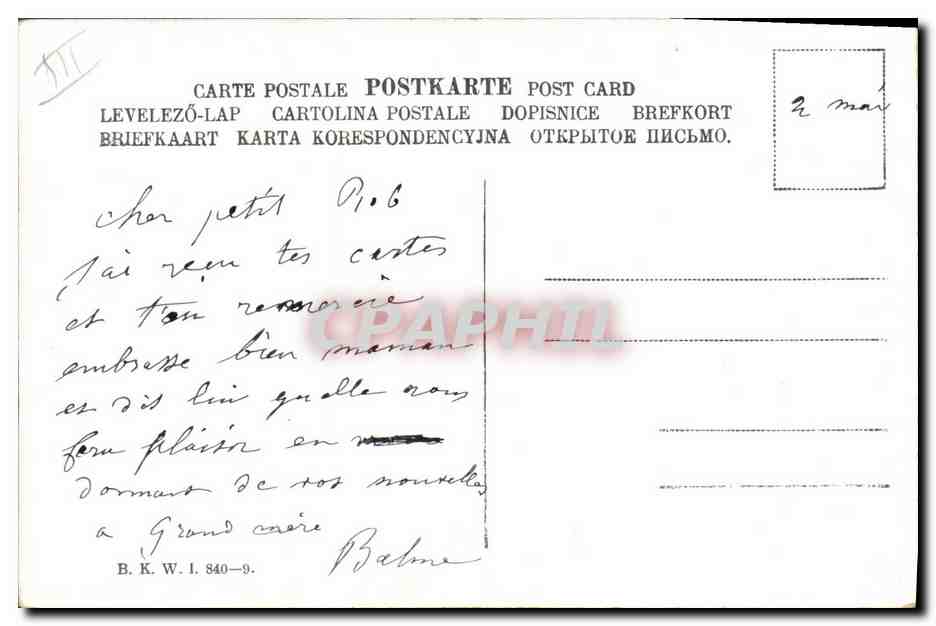 III
CARTE POSTALE POSTKARTE POST CARD
LEVELEZŐ-LAP CARTOLINA POSTALE DOPISNICE BREFKORT
BRIEFKAART KARTA KORESPONDENCYJNA ОТКРЫТОЕ ПИСЬМО.
2 mai
cher petit
J'ai reçu tes cartes
et t'en remercie
embrasse bien maman
et dis lui quelle nous
fera plaisir en
donnant de vos nouvelles
a Grand mère
Balme
B. K. W. I. 840-9.
CPAPHIL